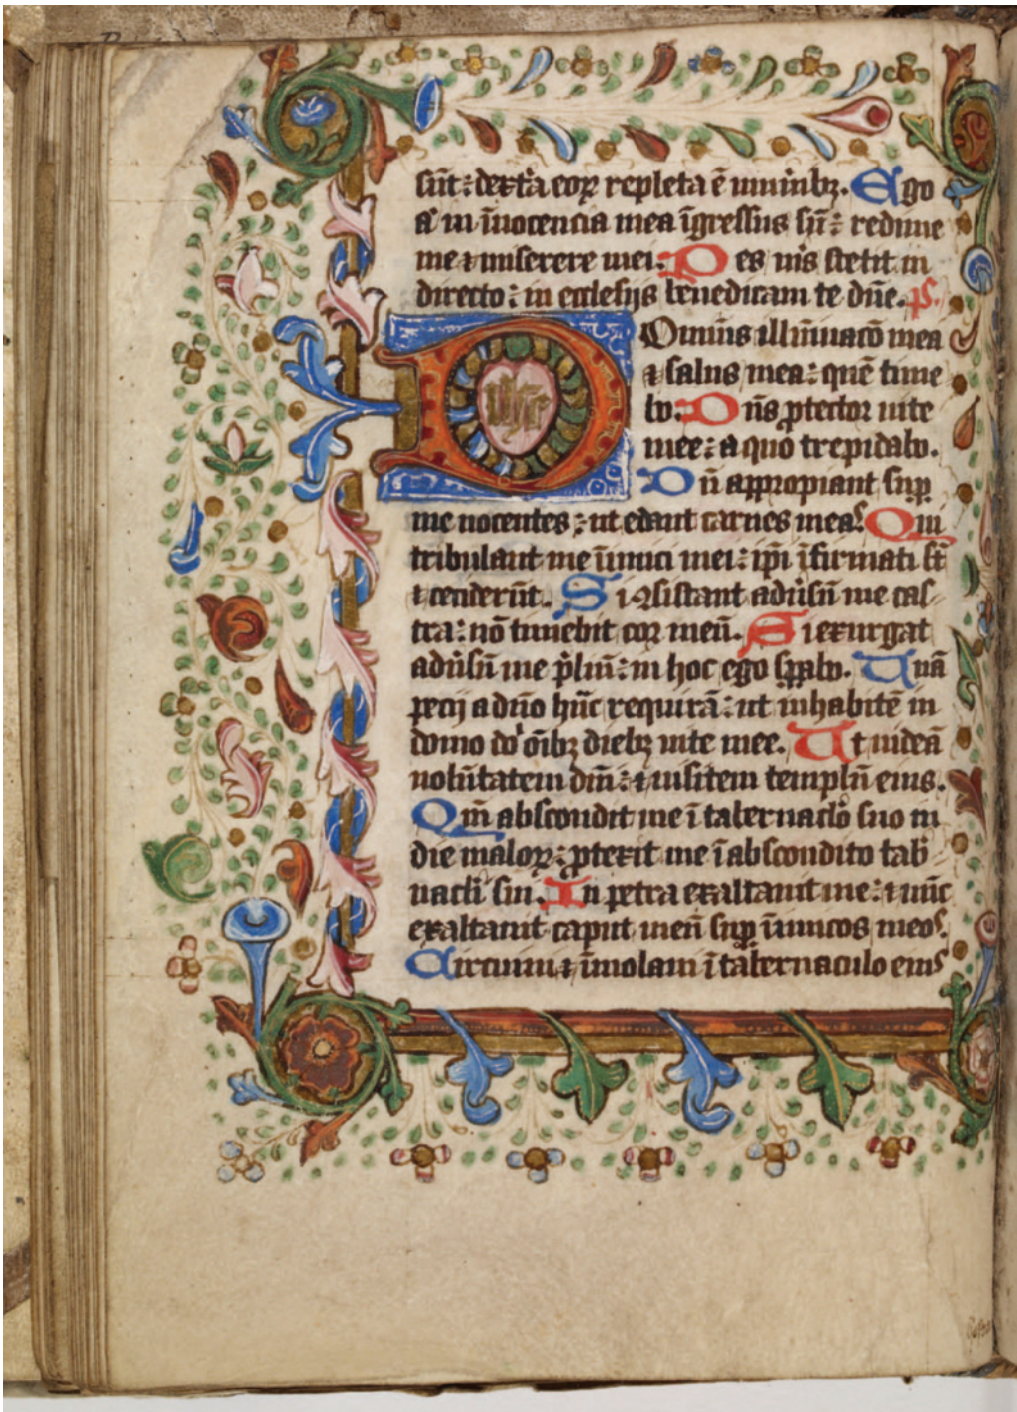 sūt : dext̾a eoꝝ repleta ē munibꝫ. Ego
a᷒ in īnocencia mea īgressus sū : redime
me ⁊ miserere mei. Pes m̄s stetit in
directo : in ecclesijs benedicam te dn̄e. ps.
Dominus illūīnacō mea
⁊ salus mea : quē time
bo. Dn̄s ꝓtector uite
mee : a quo trepidabo.
Dū appropiant suꝑ
me nocentes : ut edant carnes meas. Qui
tribulant me īmici mei : ip̄i īfirmati st̄
⁊ cecider̄ūt. Si ꝯsistant adūsū me cas-
tra : nō timebit cor meū. Si exurgat
adūsū me p̄liū : in hoc ego sꝑabo. Unā
pecij a dn̄o hūc requirā : ut inhabitē in
domo dō oībꝫ diebꝫ uite mee. Ut uideā
uolūtatem dn̄i : ⁊ uisitem templū eius.
Qm̄ abscondit me ī tabernaclō suo in
die maloꝝ : ꝓtexit me ī abscondito tab̄
nacli sui. In petra exaltauit me : ⁊ nūc
exaltauit caput meū suꝑ īimicos meos.
Circuiui ⁊ īmolaui ī tabernaculo eius
ihs